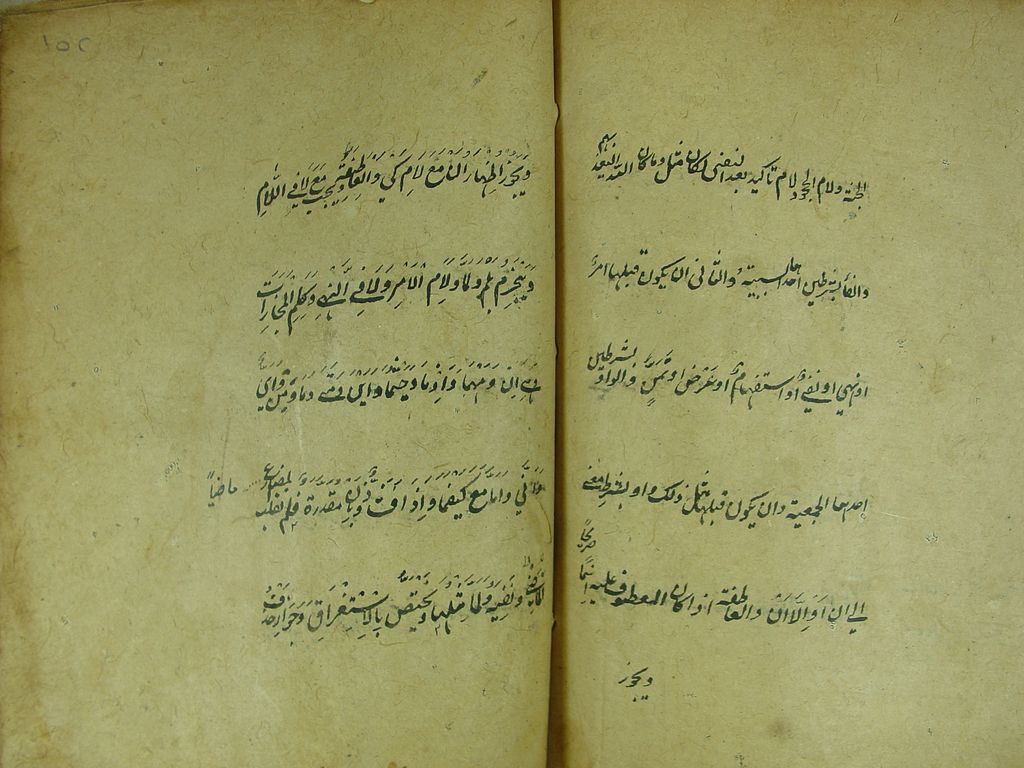 الجنة ولام الجحود لام تأكيد بعد النفي لكان مثل وما كان الله ليعذبهم
والفاء بشرطين احدهما السببية والثانى ان يكون قبلها امر
او نهي او نفي او استفهام او عرض او تمن والواو بشرطين
احدهما الجمعية وان يكون قبلها مثل ذلك واو بشرط معنى
الي ان او الا ان والعاطفة اذا كان المعطوف عليه اسما صريحا
ويجوز
١٥٢
ويجوز اظهار ان مع لام كي والعاطفة ويجب مع لا في اللام
وينجزم بلم ولما ولام الامر ولا في النهي وكلم المجازات
وهي ان ومهما واذما وحيثما واين ومتى وما ومن واي
وانى واما مع كيفما واذا فشاذ وبان مقدرة فلم لقلب المضارع ماضيا
ونفيه ولما مثلها ويختص بالاستغراق وجواز حذف